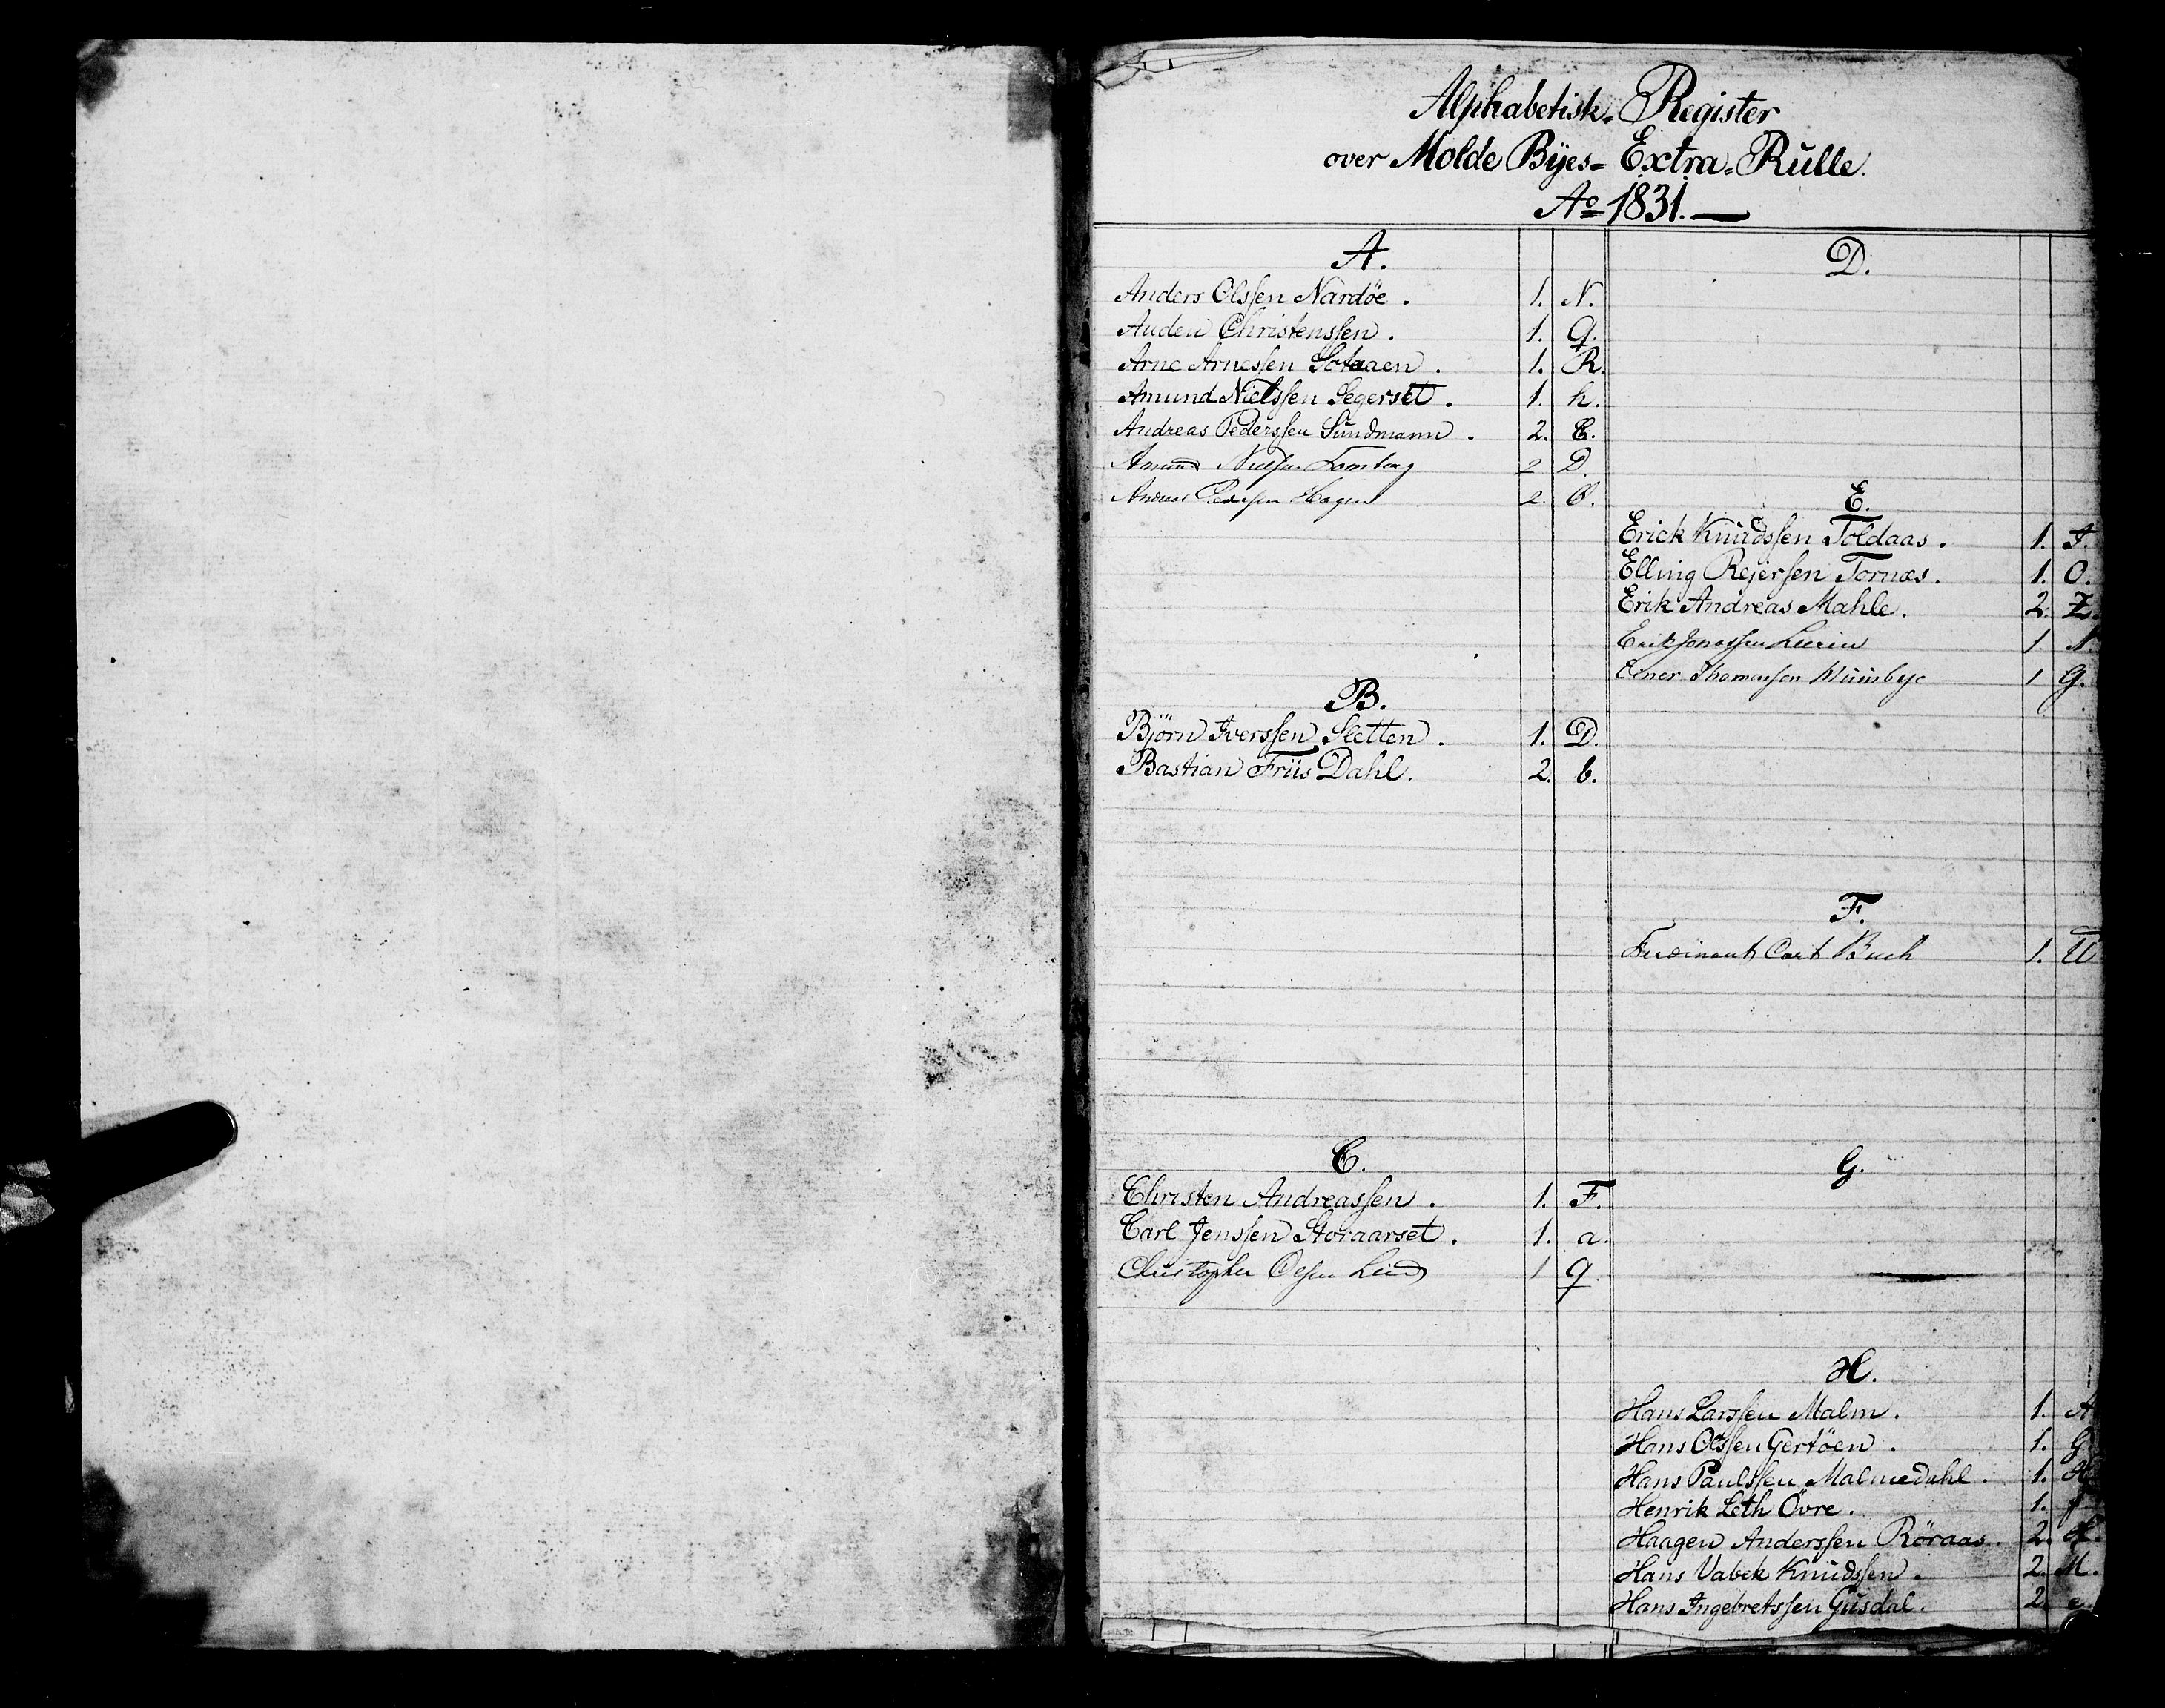 Alphabetisk-Register
over Molde Byes-Extra-Rulle.
Ao 1831.
A.
Anders Olssen Nardöe. 1. N.
Auden Christenssen. 1. Q.
Arne Arnessen 1. R.
Amund Nielssen Segerset. 1. h.
Andreas Pederssen Sundmann. 2. C.
Amund 2 D.
Hagen 2.
B.
Björn Iverssen Sletten. 1. D.
Bastian Friis Dahl. 2. b.
C.
Christen Andreassen. 1. F.
Carl Jenssen Storaarset. 1. a.
Christopher Olsen Lund 1 q.
D.
E.
Erick Knudssen Toldaas. 1.
Elling Rejersen Tornæs. 1. O.
Erik Andreas Mahle. 2. Z.
Erik Jonassen 1 N.
Thomassen 1 G.
F.
Ferdinant Carl Buch 1. U
G.
H.
Hans Larssen Malm. 1. A
Hans Olssen Gertöen. 1. G
Hans Paulssen Malmedahl. 1. H
Henrik Leth Övre. 1. f
Haagen Anderssen Röraas. 2. H.
Hans Vabek Knudssen. 2. M.
Hans Ingebretssen Gusdal. 2. e.